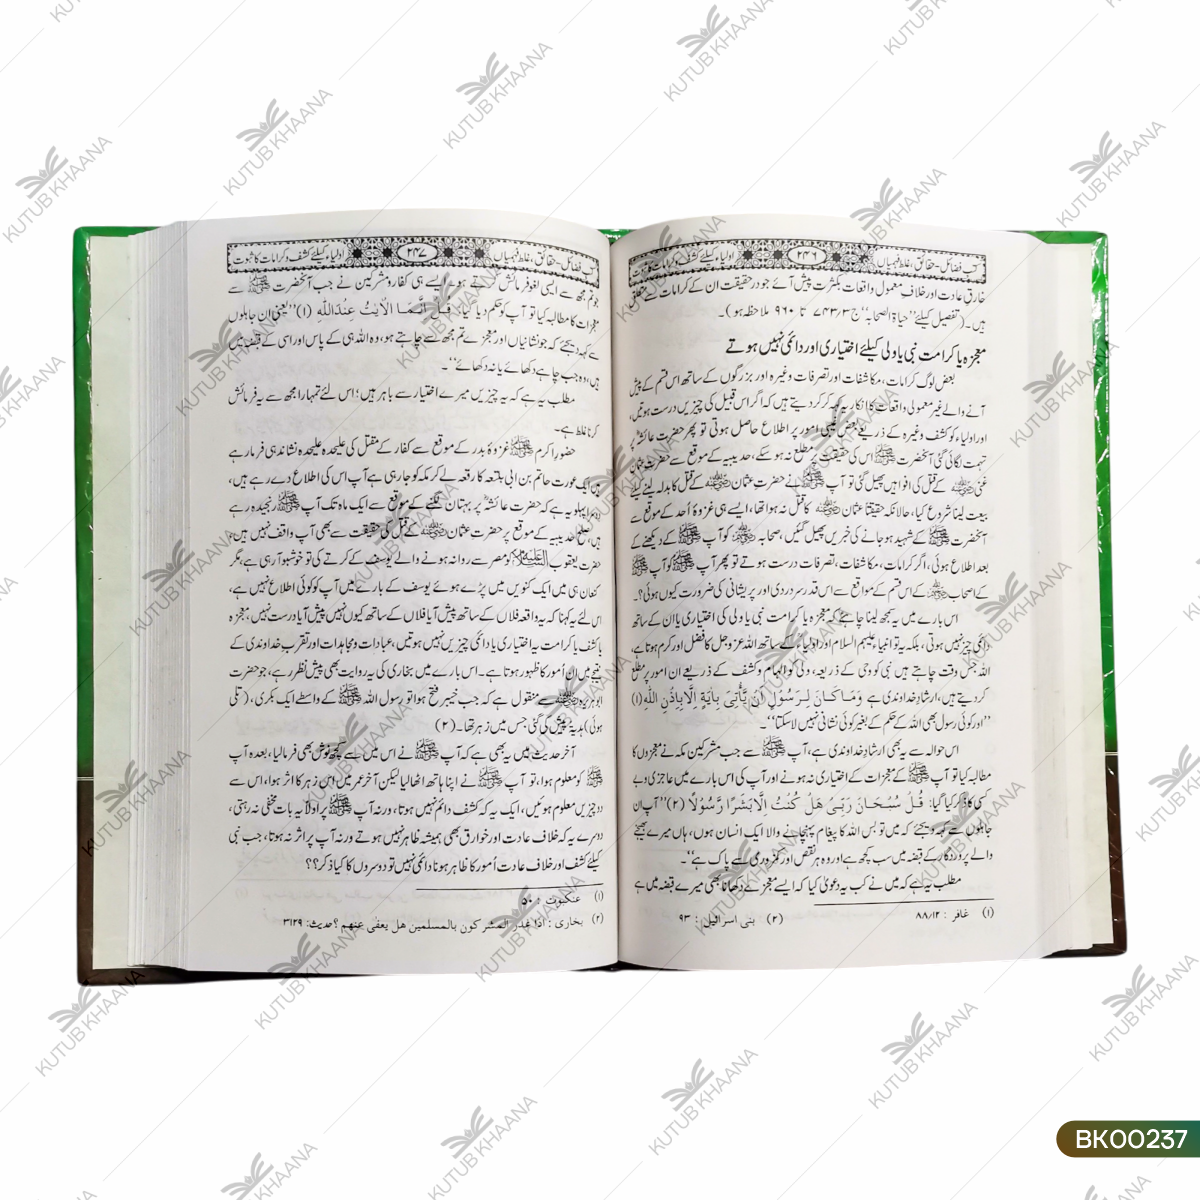 کتب فضائل - حقائق، غلط فہمیاں ۲۴۶ اولیاء کیلئے کشف وکرامات کا ثبوت
خارق عادت اور خلاف معمول واقعات بکثرت پیش آئے جو درحقیقت ان کے کرامات سے متعلق
ہیں۔ (تفصیل کیلئے ’’حیاۃ الصحابہ‘‘ ج ۳/۷۴۳ تا ۹۶۰ ملاحظہ ہو)۔
معجزہ یا کرامت نبی یا ولی کیلئے اختیاری اور دائمی نہیں ہوتے
بعض لوگ کرامات، مکاشفات اور تصرفات وغیرہ اور بزرگوں کے ساتھ اس قسم کے پیش
آنے والے غیر معمولی واقعات کا انکار یہ کہہ کر کر دیتے ہیں کہ اگر اس قبیل کی چیزیں درست ہوتیں،
اور اولیاء کو کشف وغیرہ کے ذریعے بعض غیبی امور پر اطلاع حاصل ہوتی تو پھر حضرت عائشہؓ پر
تہمت لگائی گئی آنحضرت ﷺ اس کی حقیقت پر مطلع نہ ہو سکے، حدیبیہ کے موقع سے حضرت عثمان
غنی کے قتل کی افواہیں پھیل گئی تو آپ ﷺ نے حضرت عثمان کے قتل کا بدلہ لینے کیلئے
بیعت لینا شروع کیا، حالانکہ حقیقتاً عثمان کا قتل نہ ہوا تھا، ایسے ہی غزوۂ اُحد کے موقع سے
آنحضرت ﷺ کے شہید ہو جانے کی خبریں پھیل گئیں، صحابہ کو آپ ﷺ کے دیکھنے کے
بعد اطلاع ہوئی، اگر کرامات، مکاشفات، تصرفات درست ہوتے تو پھر آپ ﷺ کو آپ ﷺ
کے اصحاب کے اس قسم کے مواقع سے اس قدر سردردی اور پریشانی کی ضرورت کیوں ہوئی؟۔
اس بارے میں یہ سمجھ لینا چاہئے کہ معجزہ یا کرامت نبی یا ولی کی اختیاری یا ان کے ساتھ
دائمی چیز نہیں ہوتی، بلکہ یہ تو انبیاء علیہم السلام اور اولیاء کے ساتھ اللہ عز وجل کا فضل اور کرم ہوتا ہے،
اللہ جس وقت چاہتے ہیں نبی کو وحی کے ذریعہ، ولی کو الہام وکشف کے ذریعے ان امور پر مطلع
کر دیتے ہیں، ارشادِ خداوندی ہے وَمَا كَانَ لِرَسُوْلٍ اَنْ يَّأْتِيَ بِاٰيَةٍ اِلَّا بِاِذْنِ اللّٰهِ (۱)
’’اور کوئی رسول بھی اللہ کے حکم کے بغیر کوئی نشانی نہیں لا سکتا‘‘۔
اس حوالہ سے یہ بھی ارشادِ خداوندی ہے، آپ ﷺ سے جب مشرکین مکہ نے معجزوں کا
مطالبہ کیا تو آپ ﷺ کے معجزات کے اختیاری نہ ہونے اور آپ کی اس بارے میں عاجزی و بے
کسی کا ذکر کیا گیا: قُلْ سُبْحَانَ رَبِّيْ هَلْ كُنْتُ اِلَّا بَشَرًا رَّسُوْلًا (۲) ’’آپ ان
جاہلوں سے کہہ دیجئے کہ میں تو بس اللہ کا پیغام پہنچانے والا ایک انسان ہوں، ہاں میرے بھیجنے
والے پروردگار کے قبضہ میں سب کچھ ہے اور وہ ہر نقص اور کمزوری سے پاک ہے‘‘۔
مطلب یہ ہے کہ میں نے کب یہ دعویٰ کیا کہ ایسے معجزے دکھانا بھی میرے قبضہ میں ہے
(۱) غافر : ۸۸/۱۲ (۲) بنی اسرائیل : ۹۳
کتب فضائل - حقائق، غلط فہمیاں ۲۴۷ اولیاء کیلئے کشف وکرامات کا ثبوت
جو تم مجھ سے ایسی لغو فرمائش کرتے ہو۔ ایسے ہی کفار و مشرکین نے جب آنحضرت ﷺ سے
معجزات کا مطالبہ کیا تو آپ کو حکم دیا گیا: قُلْ اِنَّمَا الْاٰيٰتُ عِنْدَ اللّٰهِ (۱) ’’یعنی ان جاہلوں
سے کہہ دیجئے کہ جو نشانیاں اور معجزے تم مجھ سے چاہتے ہو، وہ اللہ ہی کے پاس اور اسی کے قبضہ میں
ہیں، وہ جب چاہے دکھائے یا نہ دکھائے‘‘۔
مطلب یہ ہے کہ یہ چیزیں میرے اختیار سے باہر ہیں؛ اس لئے تمہارا مجھ سے یہ فرمائش
کرنا غلط ہے۔
حضور اکرم ﷺ غزوۂ بدر کے موقع سے کفار کے مقتل کی علیحدہ علیحدہ نشاندہی فرما رہے
ہیں ایک عورت حاتم بن ابی بلتعہ کا رقعہ لے کر مکہ کو جا رہی ہے آپ اس کی اطلاع دے رہے ہیں،
دوسرا پہلو یہ ہے کہ حضرت عائشہؓ پر بہتان لگنے کے موقع سے ایک ماہ تک آپ ﷺ رنجیدہ رہے
ہیں، صلح حدیبیہ کے موقع پر حضرت عثمان کے قتل کی حقیقت سے بھی آپ واقف نہیں ہیں،
حضرت یعقوب کو مصر سے روانہ ہونے والے یوسف کے کرتے کی تو خوشبو آ رہی ہے، مگر
کنعان ہی میں ایک کنویں میں پڑے ہوئے یوسف کے بارے میں آپ کو کوئی اطلاع نہیں ہے،
اس لئے یہ کہنا کہ یہ واقعہ فلاں کے ساتھ پیش آیا فلاں کے ساتھ کیوں نہیں پیش آیا درست نہیں، معجزہ
یا کشف یا کرامت یہ اختیاری یا دائمی چیزیں نہیں ہوتیں، عبادات و مجاہدات اور تقرب خداوندی کے
نتیجے میں ان اُمور کا ظہور ہوتا ہے۔ اس بارے میں بخاری کی یہ روایت بھی پیش نظر رہے، جو حضرت
ابو ہریرہ سے منقول ہے کہ جب خیبر فتح ہوا تو رسول اللہ ﷺ کے واسطے ایک بکری، (تلی
ہوئی) ہدیۃ پیش کی گئی جس میں زہر تھا۔ (۲)
آخر حدیث میں یہ بھی ہے کہ آپ ﷺ نے اس میں سے کچھ نوش بھی فرمالیا، بعدہ آپ
ﷺ کو معلوم ہوا، تو آپ ﷺ نے اپنا ہاتھ اٹھا لیا لیکن آخر عمر میں اس زہر کا اثر ہوا، اس سے
دو چیزیں معلوم ہوئیں، ایک یہ کہ کشف دائم نہیں ہوتا، ورنہ آپ ﷺ پر اولاً یہ بات مخفی نہ رہتی،
دوسرے یہ کہ خلاف عادت اور خوارق بھی ہمیشہ ظاہر نہیں ہوتے ورنہ آپ پر اثر نہ ہوتا، جب نبی
کیلئے کشف اور خلاف عادت اُمور کا ظاہر ہونا دائمی نہیں تو دوسروں کا کیا ذکر؟؟
(۱) عنکبوت : ۵۰
(۲) بخاری : اذا غدر المشرکون بالمسلمین هل یعفی عنهم ؟ حدیث: ۳۱۲۹
KUTUB KHAANA
BK00237